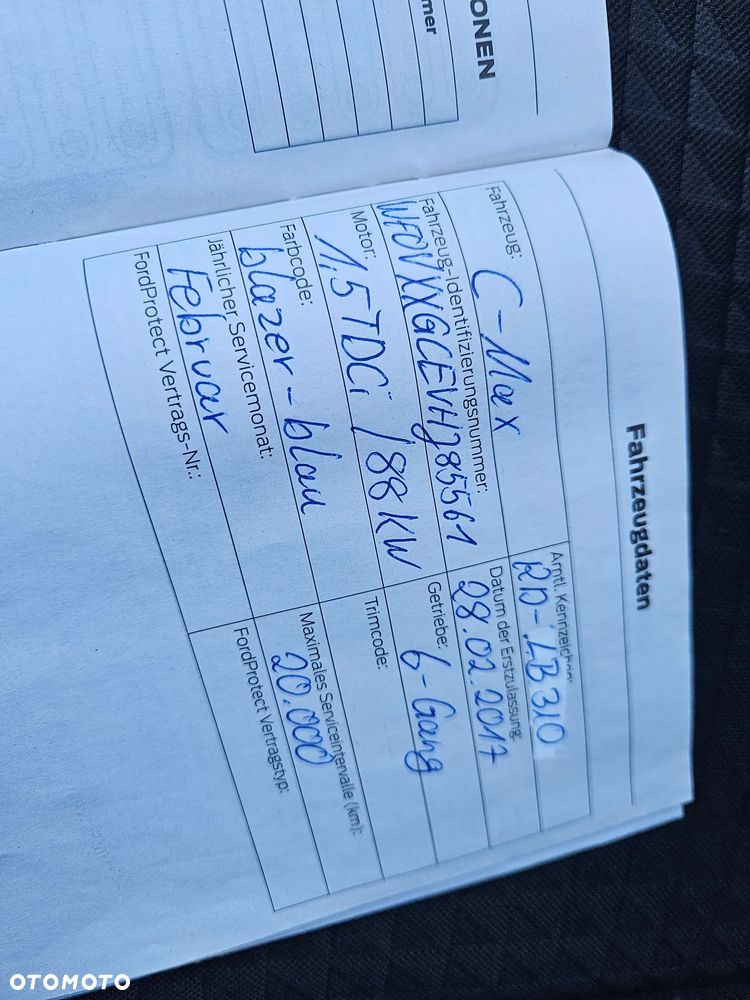 ONEN
mer
Fahrzeugdaten
Fahrzeug:
C-Max
Amtl. Kennzeichen:
RD-LB310
Fahrzeug-Identifizierungsnummer:
WF0VXXGCEVHJ85561
Datum der Erstzulassung:
28.02.2017
Motor:
1,5TDCi /88KW
Getriebe:
6-Gang
Farbcode:
blazer-blau
Trimcode:
Jährlicher Servicemonat:
Februar
Maximales Serviceintervalle (km):
20.000
FordProtect Vertrags-Nr.:
FordProtect Vertragstyp:
OTOMOTO